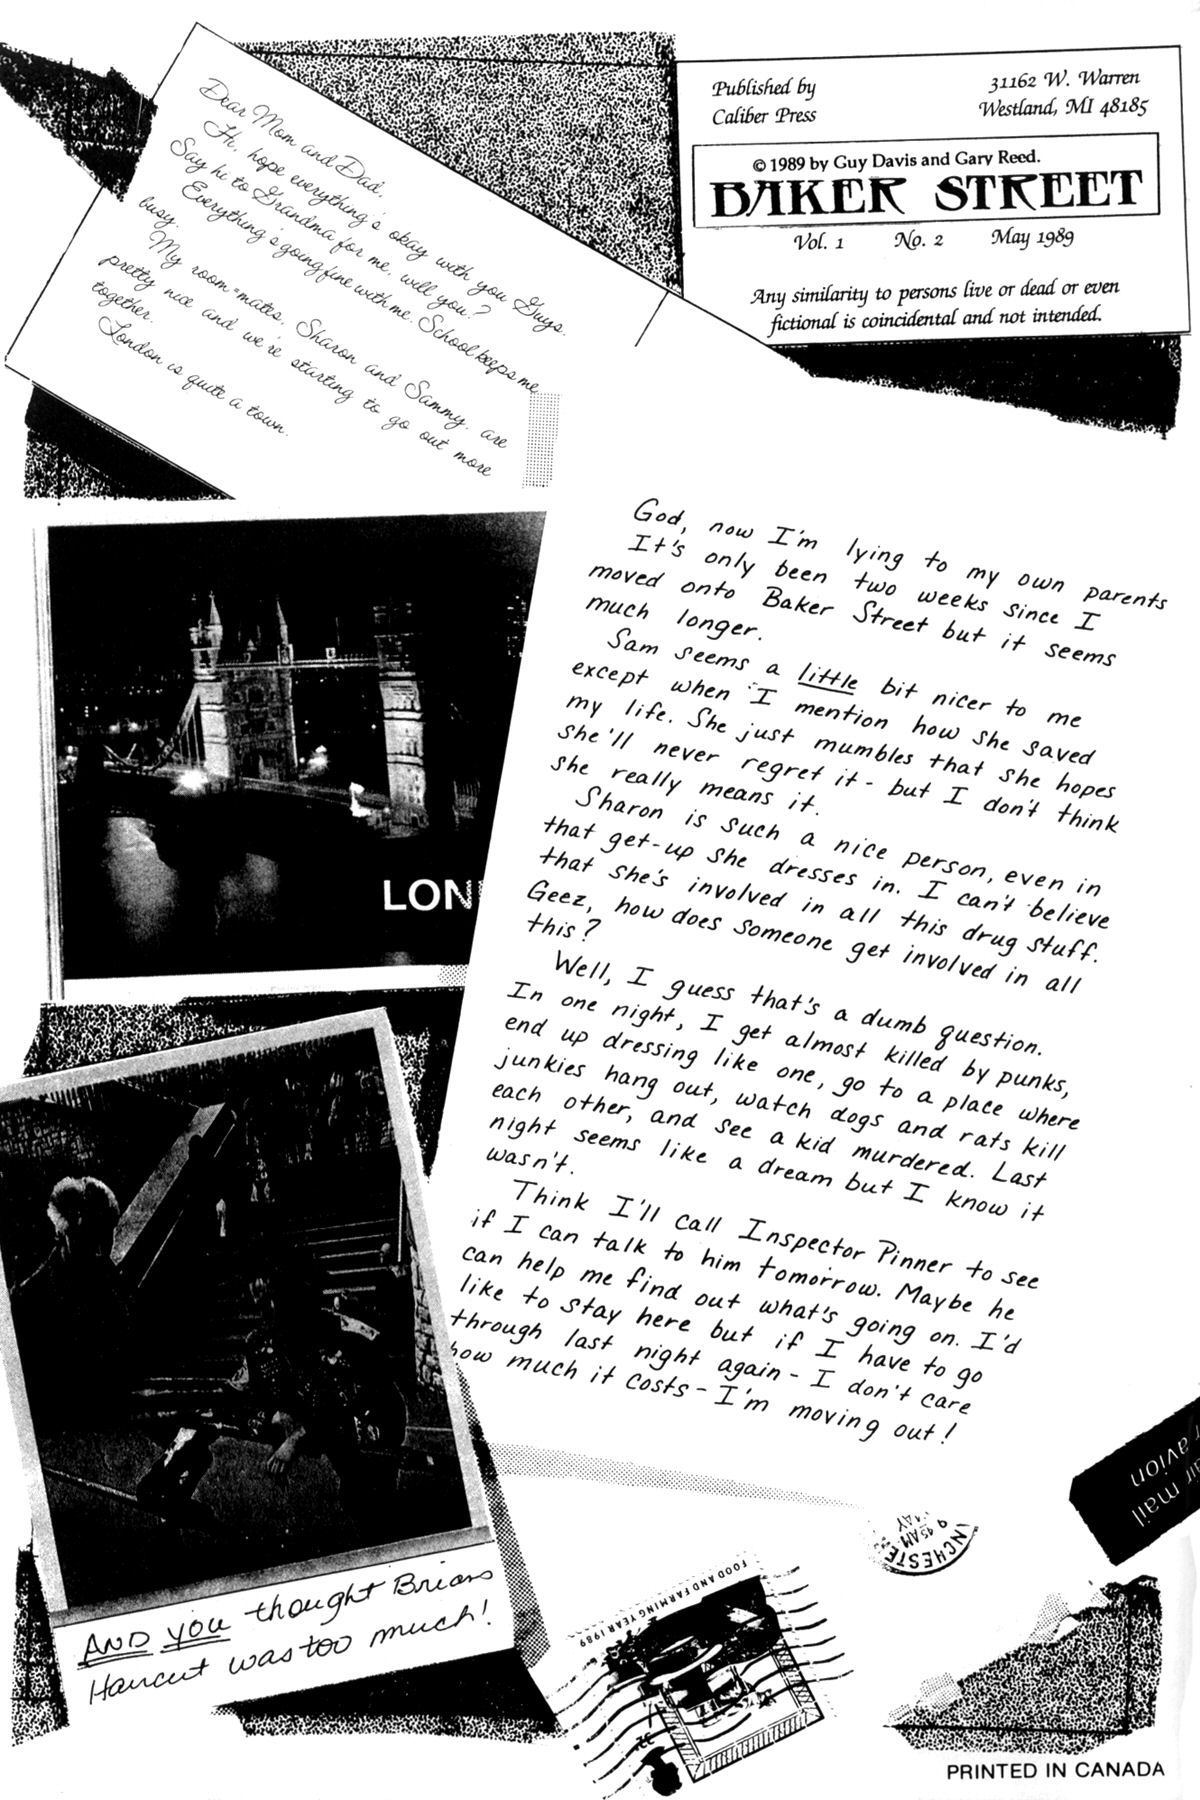 Dear Mom and Dad,
Hi, hope everything's okay with you Guys.
Say hi to Grandma for me, will you?
Everything's going fine with me. School keeps me
busy.
My room-mates, Sharon and Sammy, are
pretty nice and we're starting to go out more
together.
London is quite a town.
Published by
Caliber Press
31162 W. Warren
Westland, MI 48185
© 1989 by Guy Davis and Gary Reed.
BAKER STREET
Vol. 1 No. 2 May 1989
Any similarity to persons live or dead or even
fictional is coincidental and not intended.
LON
God, now I'm lying to my own parents
It's only been two weeks since I
moved onto Baker Street but it seems
much longer.
Sam seems a little bit nicer to me
except when I mention how she saved
my life. She just mumbles that she hopes
she'll never regret it - but I don't think
she really means it.
Sharon is such a nice person, even in
that get-up she dresses in. I can't believe
that she's involved in all this drug stuff.
Geez, how does someone get involved in all
this?
Well, I guess that's a dumb question.
In one night, I get almost killed by punks,
end up dressing like one, go to a place where
junkies hang out, watch dogs and rats kill
each other, and see a kid murdered. Last
night seems like a dream but I know it
wasn't.
Think I'll call Inspector Pinner to see
if I can talk to him tomorrow. Maybe he
can help me find out what's going on. I'd
like to stay here but if I have to go
through last night again - I don't care
how much it costs - I'm moving out!
AND YOU thought Brians
Haircut was too much!
FOOD AND FARMING YEAR 1989
NCHESTE
9 45AM
MAY
air mail
r avion
PRINTED IN CANADA